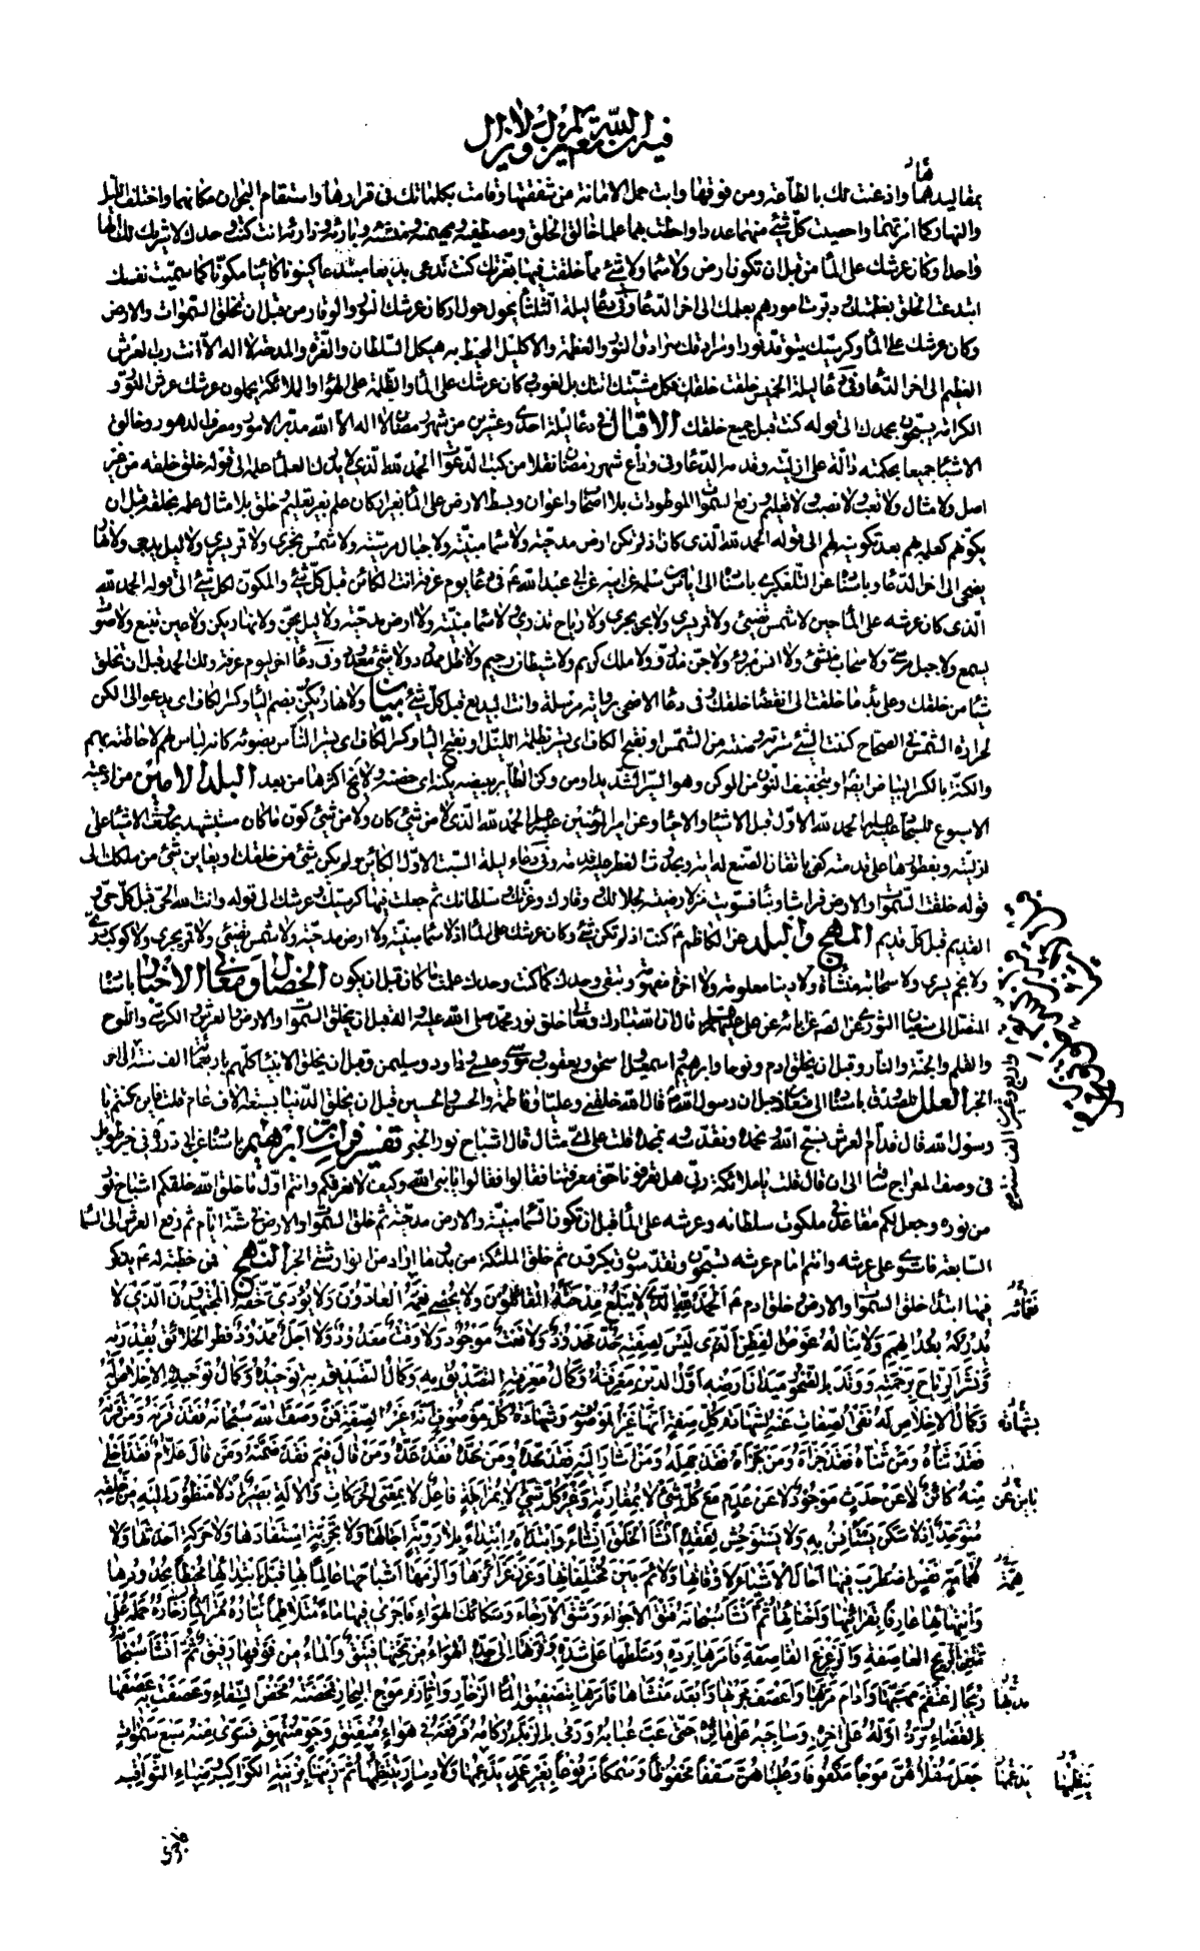 فيه ان الله تعالى لم يزل ولا يزال
بمقاليدها واذعنت لك بالطاعة ومن فوقها وابت حمل الامانة من شفقتها وقامت بكلماتك في قرارها واستقام البحران مكانهما واختلف الليل
والنهار كما امرتهما واحصيت كل شئ منهما عددا واحطت بهما علما خالق الخلق ومصطفيه ومهيمنه ومنشئه وبارئه وذارئه انت كنت وحدك لا شريك لك الها
واحدا وكان عرشك على الماء من قبل ان تكون ارض ولا سماء ولا شئ مما خلقت فيهما بعزتك كنت تدعى بديعا مبتدعا كينونا كائنا مكونا كما سميت نفسك
ابتدعت الخلق بعظمتك ودبرت امورهم بعلمك الى اخر الدعاء وفي دعاء ليلة الثلثاء يحول حول اركان عرشك النور والوقار من قبل ان تخلق السموات والارض
وكان عرشك على الماء وكرسيك يتوقد نورا وسرادقك سرادق النور والعظمة والاكليل المحيط به هيكل السلطان والعزة والمدحة لا اله الا انت رب العرش
العظيم الى اخر الدعاء وفي دعاء ليلة الخميس خلقت خلقك فكل مشيتك اتتك بلا لغوب كان عرشك على الماء والظلمة على الهواء والملائكة يحملون عرشك عرش النور و
الكرامة يسبحون بحمدك الى قوله كنت قبل جميع خلقك الاقبال في دعاء ليلة احدى وعشرين من شهر رمضان لا اله الا الله مدبر الامور ومصرف الدهور وخالق
الاشياء جميعا بحكمته دالة على ازليته وقدمه الدعاء وفي وداع شهر رمضان نقلا من كتب الدعوات الحمد لله الذي لا يدرك العلماء علمه الى قوله خلق خلقه من غير
اصل ولا مثال ولا تعب ولا نصب ولا تعليم ورفع السموات الموطودات بلا اصحاب ولا اعوان وبسط الارض على الماء بغير اركان علم بغير تعليم وخلق بلا مثال علمه بخلقه قبل ان
يكونهم كعلمه بهم بعد تكوينه لهم الى قوله الحمد لله الذي كان اذ لم تكن ارض مدحية ولا سماء مبنية ولا جبال مرسية ولا شمس تجري ولا قمر يسري ولا ليل يدجى ولا نهار
يضحى الى اخر الدعاء وباسناده عن التلعكبري باسناده الى اياس بن سلمة عن ابيه عن ابي عبد الله ع في دعاء يوم عرفة انت الكائن قبل كل شئ والمكون لكل شئ الى قوله الحمد لله
الذي كان عرشه على الماء حين لا شمس تضيئ ولا قمر يسري ولا بحر يجري ولا رياح تذري ولا سماء مبنية ولا ارض مدحية ولا ليل يجن ولا نهار يكن ولا عين تنبع ولا صوت
يسمع ولا جبل مرسى ولا سحاب منشئ ولا انس مبرو ولا جن مذرو ولا ملك كريم ولا شيطان رجيم ولا ظل ممدود ولا شئ معدود وفي دعاء اخر ليوم عرفة ولك الحمد قبل ان تخلق
شيئا من خلقك وعلى بدء ما خلقت الى انقضاء خلقك وفي دعاء الاضحى برواية مرسلة وانت البديع قبل كل شئ بيان ولا نهار يكن بضم الياء وكسر الكاف اي يدعو الى الكن
لحرارة الشمس في الصحاح كننت الشئ سترته وصنته من الشمس
والكنة بالكسر البياض ايضا او بتخفيف النون من الوكن وهو السير الشديد او من وكن الطاير بيضه يكنه اي حضنه ولا يخ اكثرها من بعد البلد الامين من ادعية
الاسبوع للسجاد عليه السلام الحمد لله الاول قبل الاشياء والاحياء وعن امير المؤمنين عليه السلام الحمد لله الذي لا من شئ كان ولا من شئ كون ما كان مستشهد بحدوث الاشياء على
ازليته وبفطورها على قدمته كفى باتقان الصنع له اية وبحدوث الفطر عليه قدمة وفي دعاء ليلة السبت الاول الكائن ولم يكن شئ من خلقك او يعاين شئ من ملكك الى
قوله خلقت السموات والارض فراشا وبناء فسويت السماء منزلا رضيته لجلالك ووقارك وعزتك وسلطانك ثم جعلت فيها كرسيك وعرشك الى قوله وانت الله الحي قبل كل حي و
القديم قبل كل قديم المهج والبلد عن الكاظم ع كنت اذ لم تكن شئ وكان عرشك على الماء اذ لا سماء مبنية ولا ارض مدحية ولا شمس تضيئ ولا قمر يجري ولا كوكب دري
ولا نجم يسري ولا سحابة منشأة ولا دنيا معلومة ولا اخرة مفهومة وتبقى وحدك كما كنت وحدك علمت ما كان قبل ان يكون الخصال ومعاني الاخبار باسناده
المتصل الى سفيان الثوري عن الصادق عن ابائه عن علي عليهم السلام قال ان الله تبارك وتعالى خلق نور محمد صلى الله عليه واله قبل ان يخلق السموات والارض والعرش والكرسي واللوح
والقلم والجنة والنار وقبل ان يخلق ادم ونوحا وابرهيم واسمعيل واسحق ويعقوب وموسى وعيسى وداود وسليمن وقبل ان يخلق الانبياء كلهم باربعمائة الف سنة الى اخر
الخبر العلل للصدوق باسناده الى معاذ بن جبل ان رسول الله ص قال ان الله خلقني وعليا وفاطمة والحسن والحسين قبل ان يخلق الدنيا بسبعة الاف عام قلت فاين كنتم يا
رسول الله قال قدام العرش نسبح الله ونحمده ونقدسه ونمجده قلت على اي مثال قال اشباح نور الخبر تفسير فرات بن ابراهيم باسناده عن ابي ذر ره في خبر طويل
في وصف المعراج ساقه الى ان قال قلت يا ملائكة ربي هل تعرفونا حق معرفتنا فقالوا يا نبي الله وكيف لا نعرفكم وانتم اول ما خلق الله خلقكم اشباح نور
من نوره وجعل لكم مقاعد في ملكوت سلطانه وعرشه على الماء قبل ان تكون السماء مبنية والارض مدحية ثم خلق السموات والارض في ستة ايام ثم رفع العرش الى السماء
السابعة فاستوى على عرشه وانتم امام عرشه تسبحون وتقدسون وتكبرون ثم خلق الملئكة من بدو ما اراد من انوار شتى الخبر النهج في خطبة له ع يذكر
فيها ابتداء خلق السموات والارض وخلق ادم ع الحمد لله الذي لا يبلغ مدحته القائلون ولا يحصي نعمه العادون ولا يؤدي حقه المجتهدون الذي لا
يدركه بعد الهمم ولا يناله غوص الفطن الذي ليس لصفته حد محدود ولا نعت موجود ولا وقت معدود ولا اجل ممدود فطر الخلائق بقدرته
ونشر الرياح برحمته ووتد بالصخور ميدان ارضه اول الدين معرفته وكمال معرفته التصديق به وكمال التصديق به توحيده وكمال توحيده الاخلاص له
وكمال الاخلاص له نفي الصفات عنه لشهادة كل صفة انها غير الموصوف وشهادة كل موصوف انه غير الصفة فمن وصف الله سبحانه فقد قرنه ومن قرنه
فقد ثناه ومن ثناه فقد جزاه ومن جزاه فقد جهله ومن اشار اليه فقد حده ومن حده فقد عده ومن قال فيم فقد ضمنه ومن قال علام فقد اخلى
منه كائن لا عن حدث موجود لا عن عدم مع كل شئ لا بمقارنة وغير كل شئ لا بمزايلة فاعل لا بمعنى الحركات والالة بصير اذ لا منظور اليه من خلقه
متوحد اذ لا سكن يستانس به ولا يستوحش لفقده انشأ الخلق انشاء وابتدأه ابتداء بلا روية اجالها ولا تجربة استفادها ولا حركة احدثها ولا
همامة نفس اضطرب فيها احال الاشياء لاوقاتها ولاءم بين مختلفاتها وغرز غرائزها والزمها اشباحها عالما بها قبل ابتدائها محيطا بحدودها
وانتهائها عارفا بقرائنها واحنائها ثم انشأ سبحانه فتق الاجواء وشق الارجاء وسكائك الهواء فاجرى فيها ماء متلاطما تياره متراكما زخاره حمله على
متن الريح العاصفة والزعزع القاصفة فامرها برده وسلطها على شده وقرنها الى حده الهواء من تحتها فتيق والماء من فوقها دفيق ثم انشأ سبحانه
ريحا اعتقم مهبها وادام مربها واعصف مجراها وابعد منشاها فامرها بتصفيق الماء الزخار واثارة موج البحار فمخضته مخض السقاء وعصفت به عصفها
بالفضاء ترد اوله على اخره وساجيه على مائره حتى عب عبابه ورمى بالزبد ركامه فرفعه في هواء منفتق وجو منفهق فسوى منه سبع سموات
جعل سفلاهن موجا مكفوفا وعلياهن سقفا محفوظا وسمكا مرفوعا بغير عمد يدعمها ولا دسار ينتظمها ثم زينها بزينة الكواكب وضياء الثواقب